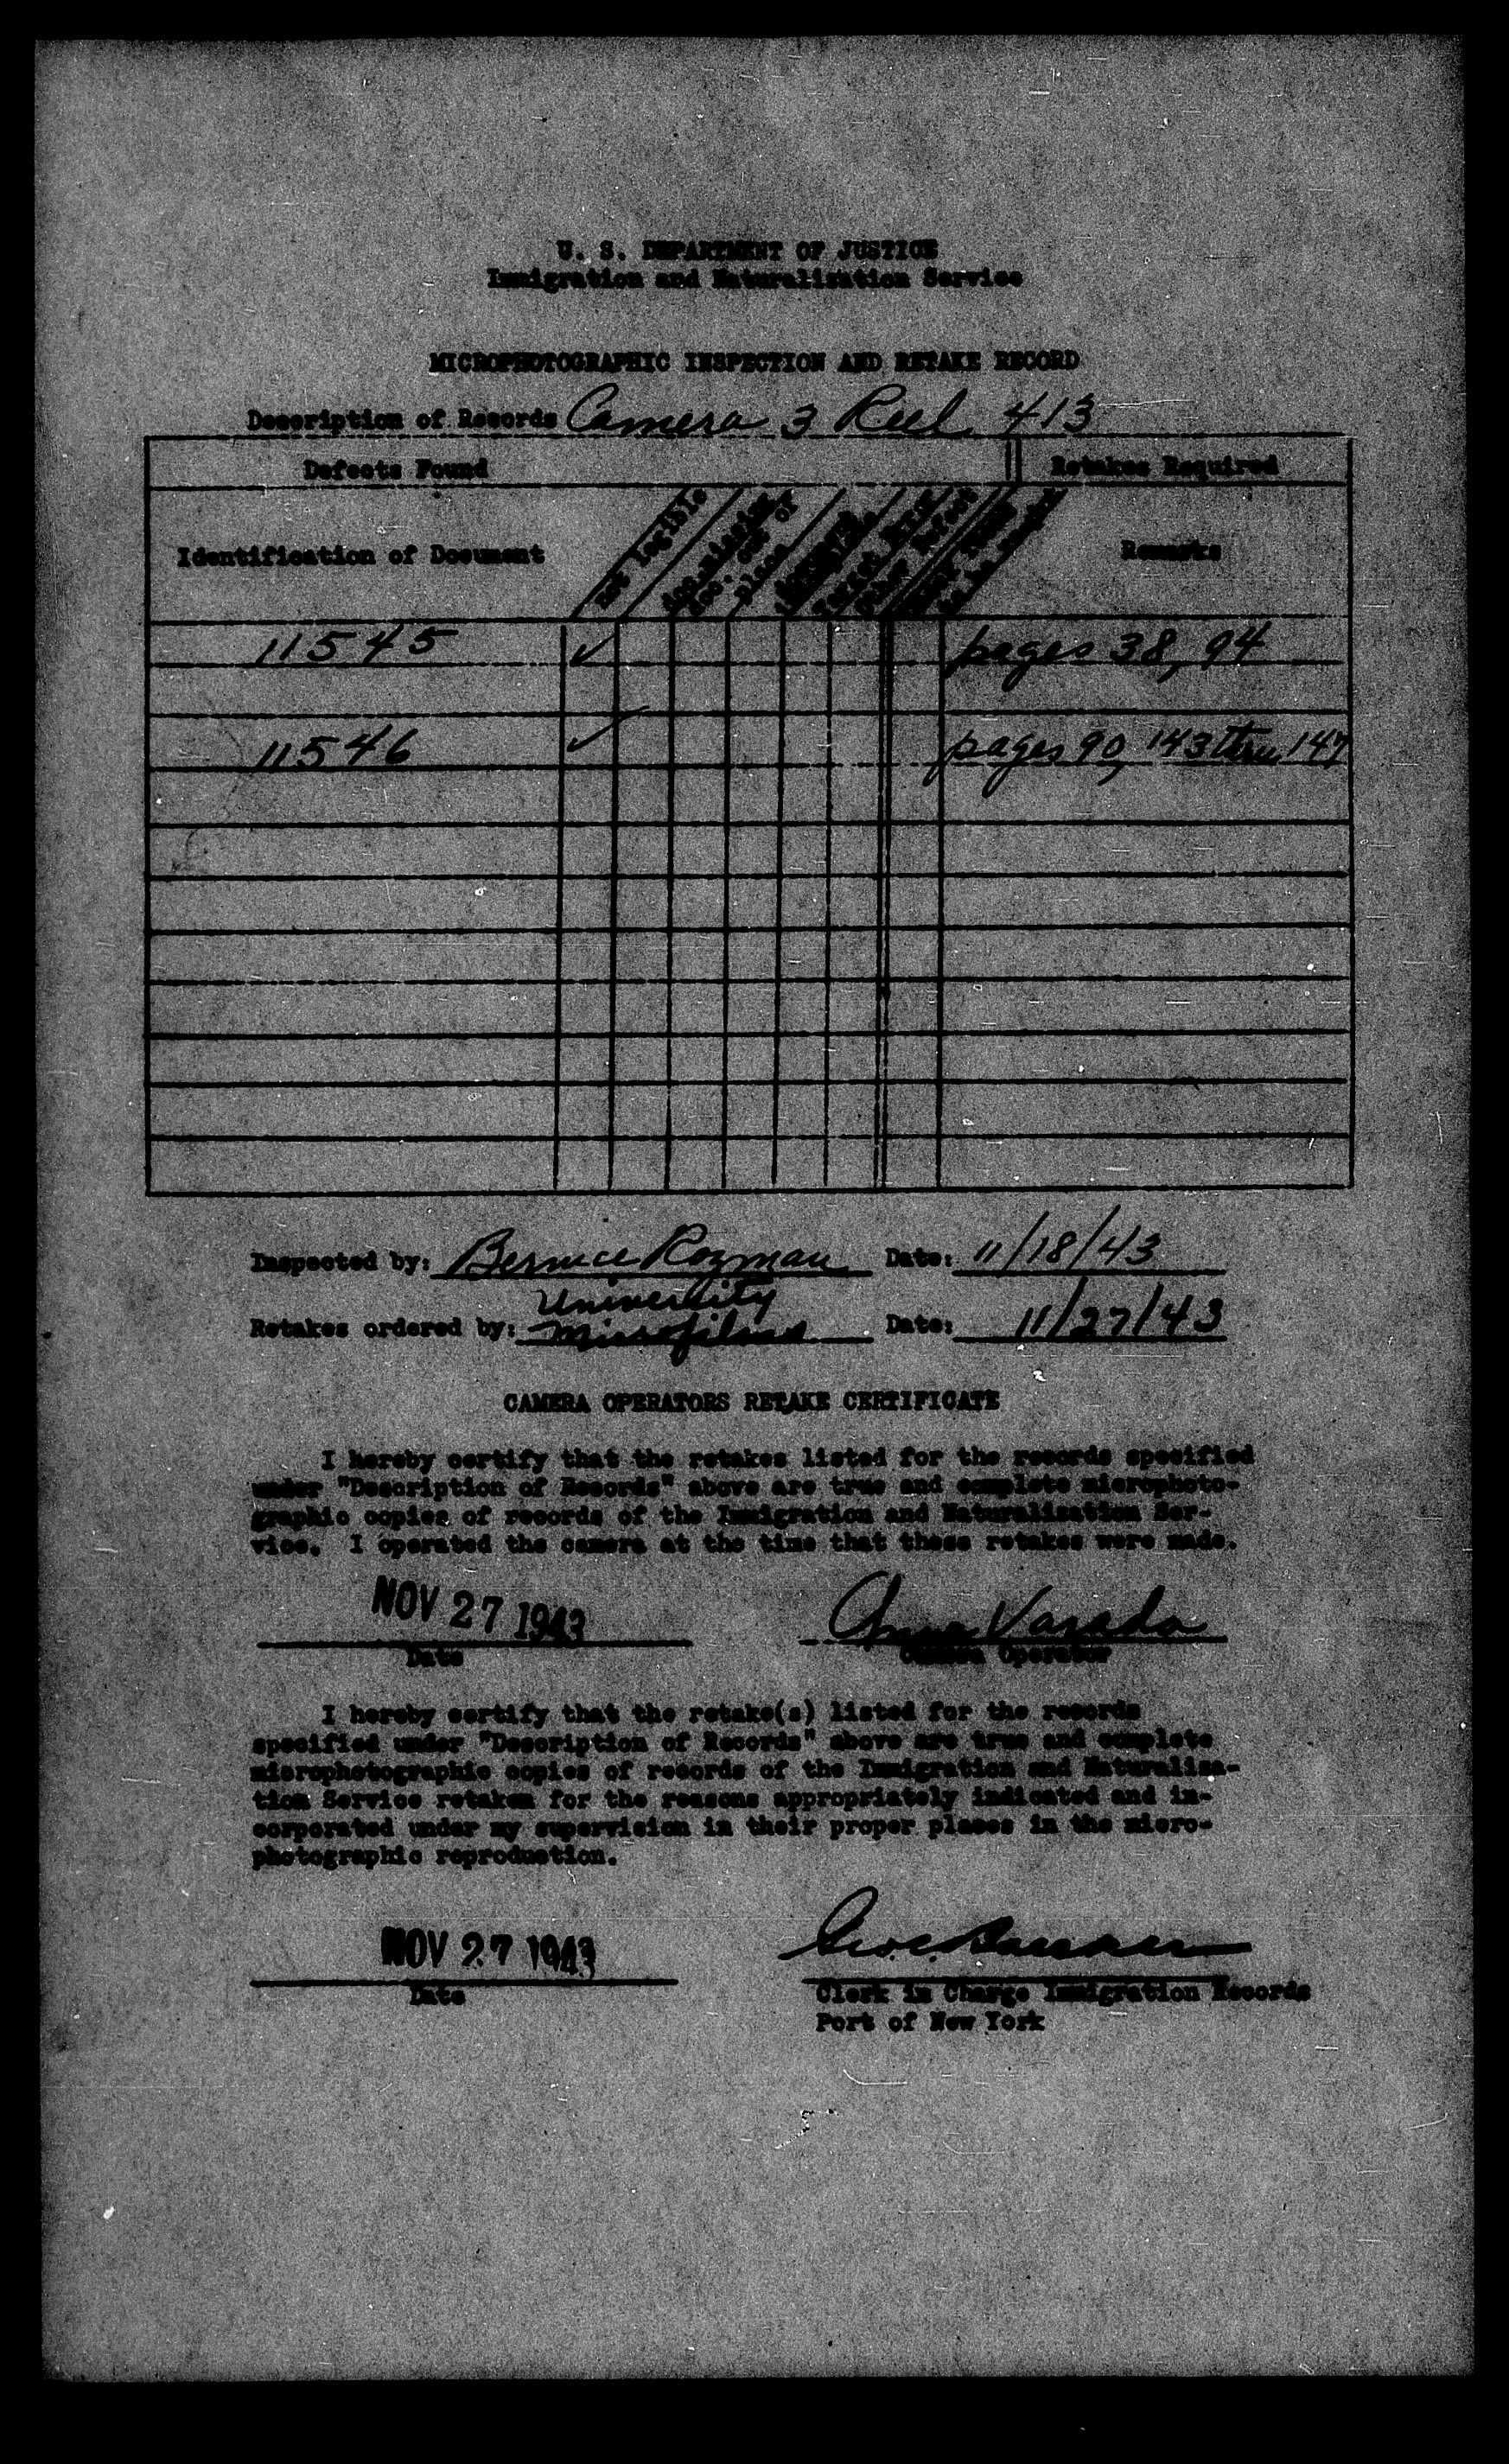 U. S. DEPARTMENT OF JUSTICE
Immigration and Naturalization Service
MICROPHOTOGRAPHIC INSPECTION AND RETAKE RECORD
Description of Records Camera 3 Reel 413
Defects Found Retakes Required
Identification of Document Not legible Remarks
11545 ✓ pages 38, 94
11546 ✓ pages 90, 143 thru 147
Inspected by: Bernice Rozman Date: 11/18/43
University
Retakes ordered by: Microfilms Date: 11/27/43
CAMERA OPERATORS RETAKE CERTIFICATE
I hereby certify that the retakes listed for the records specified
under "Description of Records" above are true and complete microphoto-
graphic copies of records of the Immigration and Naturalization Ser-
vice. I operated the camera at the time that these retakes were made.
NOV 27 1943 Anna Varada
Date Camera Operator
I hereby certify that the retake(s) listed for the records
specified under "Description of Records" above are true and complete
microphotographic copies of records of the Immigration and Naturaliza-
tion Service retaken for the reasons appropriately indicated and in-
corporated under my supervision in their proper places in the micro-
photographic reproduction.
NOV 27 1943
Date Clerk in Charge Immigration Records
Port of New York